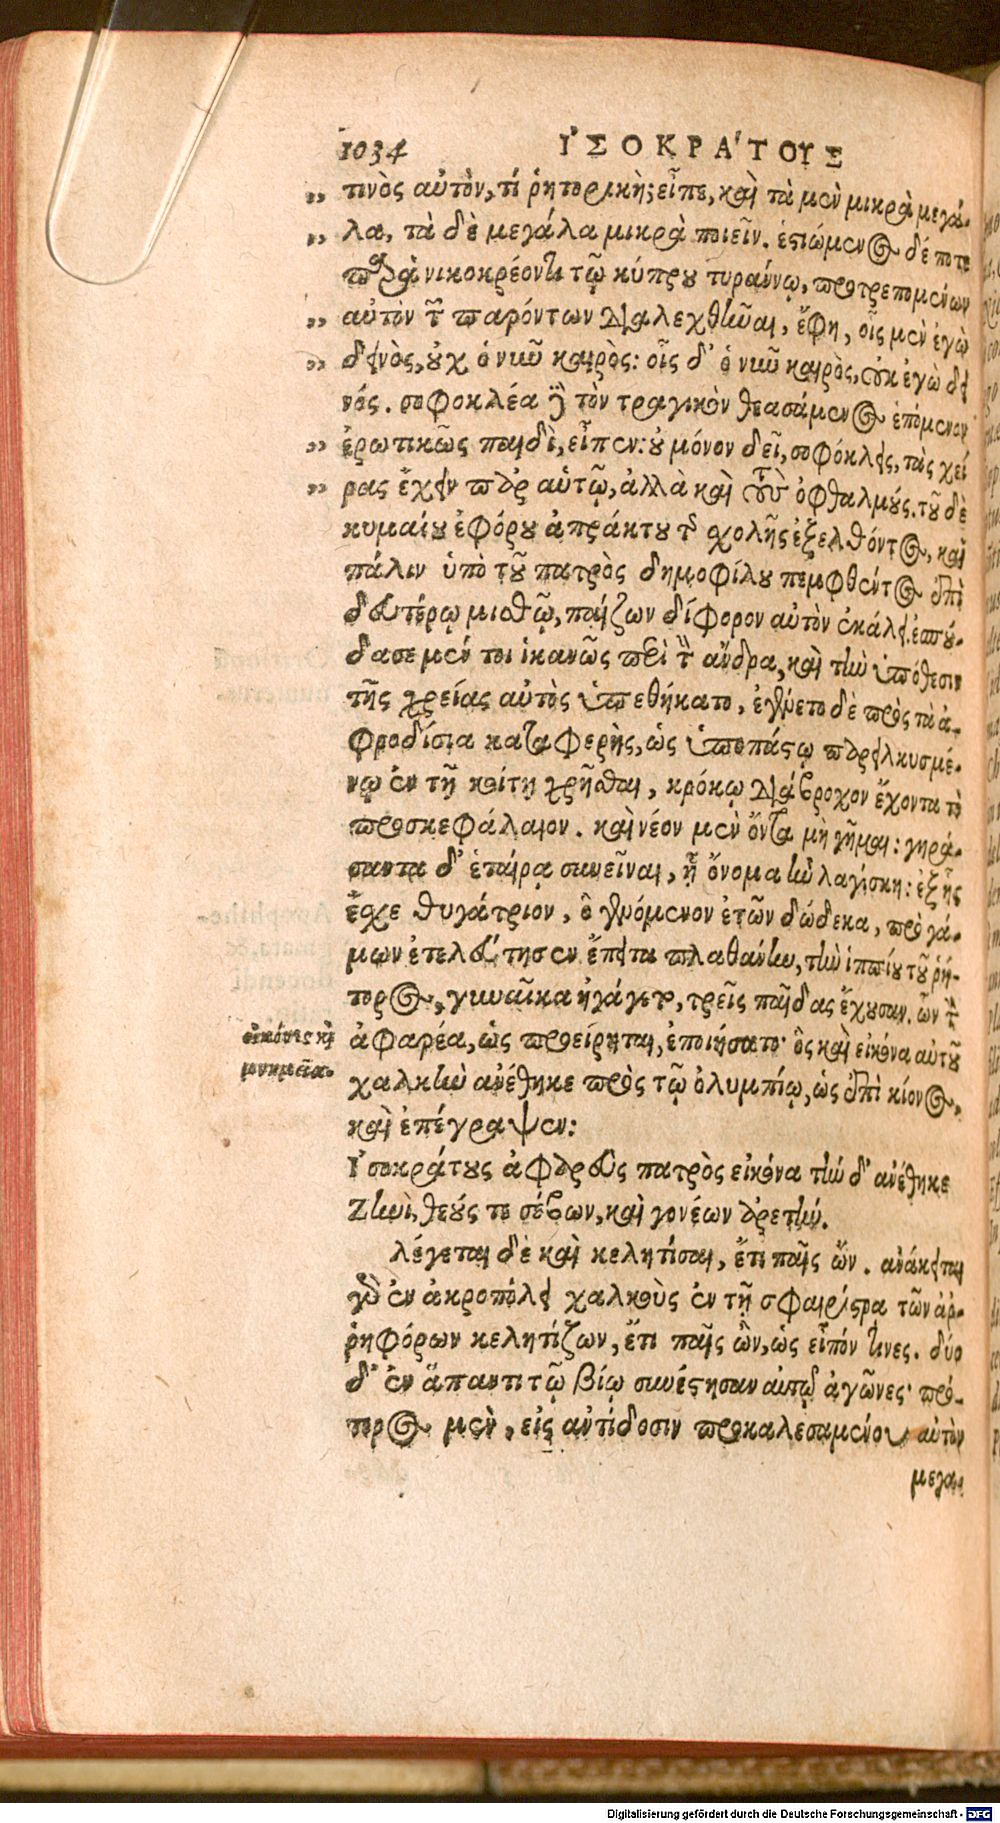 1034 ἸΣΟΚΡΆΤΟΥΣ
„ τινὸς αὐτὸν, τί ῥητορική; εἶπε, καὶ τὰ μὲν μικρὰ μεγά-
„ λα, τὰ δὲ μεγάλα μικρὰ ποιεῖν. ἑστιώμενος δέ ποτε
παρὰ νικοκρέοντι τῷ κύπρου τυράννῳ, προτρεπομένων
„ αὐτὸν τῶν παρόντων διαλεχθῆναι, ἔφη, οἷς μὲν ἐγὼ
„ δεινὸς, οὐχ ὁ νῦν καιρὸς: οἷς δ' ὁ νῦν καιρὸς, οὐκ ἐγὼ δει
νός. σοφοκλέα δὲ τὸν τραγικὸν θεασάμενος ἑπόμενον
„ ἐρωτικῶς παιδὶ, εἶπεν: οὐ μόνον δεῖ, σοφόκλεις, τὰς χεῖ
„ ρας ἔχειν παρ αὑτῷ, ἀλλὰ καὶ τοὺς ὀφθαλμούς. τοῦ δὲ
κυμαίου ἐφόρου ἀπράκτου τῆς σχολῆς ἐξελθόντος, καὶ
πάλιν ὑπὸ τοῦ πατρὸς δημοφίλου πεμφθέντος ἐπὶ
δευτέρῳ μισθῷ, παίζων δίφορον αὐτὸν ἐκάλει. ἐσπού-
δασε μέν τοι ἱκανῶς περὶ τὸν ἄνδρα, καὶ τὴν ὑπόθεσιν
τῆς χρείας αὐτὸς ὑπεθήκατο. ἐγένετο δὲ πρὸς τὰ ἀ-
φροδίσια καταφερὴς, ὡς ὑποπάστῳ παρειλκυσμέ-
νῳ ἐν τῇ κοίτῃ χρῆσθαι, κρόκῳ διάβροχον ἔχοντα τὸ
προσκεφάλαιον. καὶ νέον μὲν ὄντα μὴ γῆμαι: γηρά-
σαντα δ' ἑταίρᾳ συνεῖναι, ᾗ ὄνομα ἦν λαγίσκη: ἐξ ἧς
ἔσχε θυγάτριον, ὃ γενόμενον ἐτῶν δώδεκα, πρὸ γά-
μων ἐτελεύτησεν ἔπειτα πλαθάνην, τὴν ἱππίου τοῦ ῥή-
τορος, γυναῖκα ἠγάγετο, τρεῖς παῖδας ἔχουσαν. ὧν τὸν
εἰκόνες καὶ
μνημεῖα.
ἀφαρέα, ὡς προείρηται, ἐποιήσατο· ὃς καὶ εἰκόνα αὐτοῦ
χαλκῆν ἀνέθηκε πρὸς τῷ ὀλυμπίῳ, ὡς ἐπὶ κίονος,
καὶ ἐπέγραψεν:
Ἰσοκράτους ἀφαρεὺς πατρὸς εἰκόνα τήν δ' ἀνέθηκε
Ζηνὶ, θεούς τε σέβων, καὶ γονέων ἀρετήν.
λέγεται δὲ καὶ κελητίσαι, ἔτι παῖς ὤν. ἀνάκειται
γὰρ ἐν ἀκροπόλει χαλκοὺς ἐν τῇ σφαιρίστρᾳ τῶν ἀῤ-
ῥηφόρων κελητίζων, ἔτι παῖς ὢν, ὡς εἶπόν τινες. δύο
δ' ἐν ἅπαντι τῷ βίῳ συνέστησαν αὐτῷ ἀγῶνες· πρό-
τερος μὲν, εἰς ἀντίδοσιν προκαλεσαμένου αὐτὸν
μεγα-
Digitalisierung gefördert durch die Deutsche Forschungsgemeinschaft - DFG